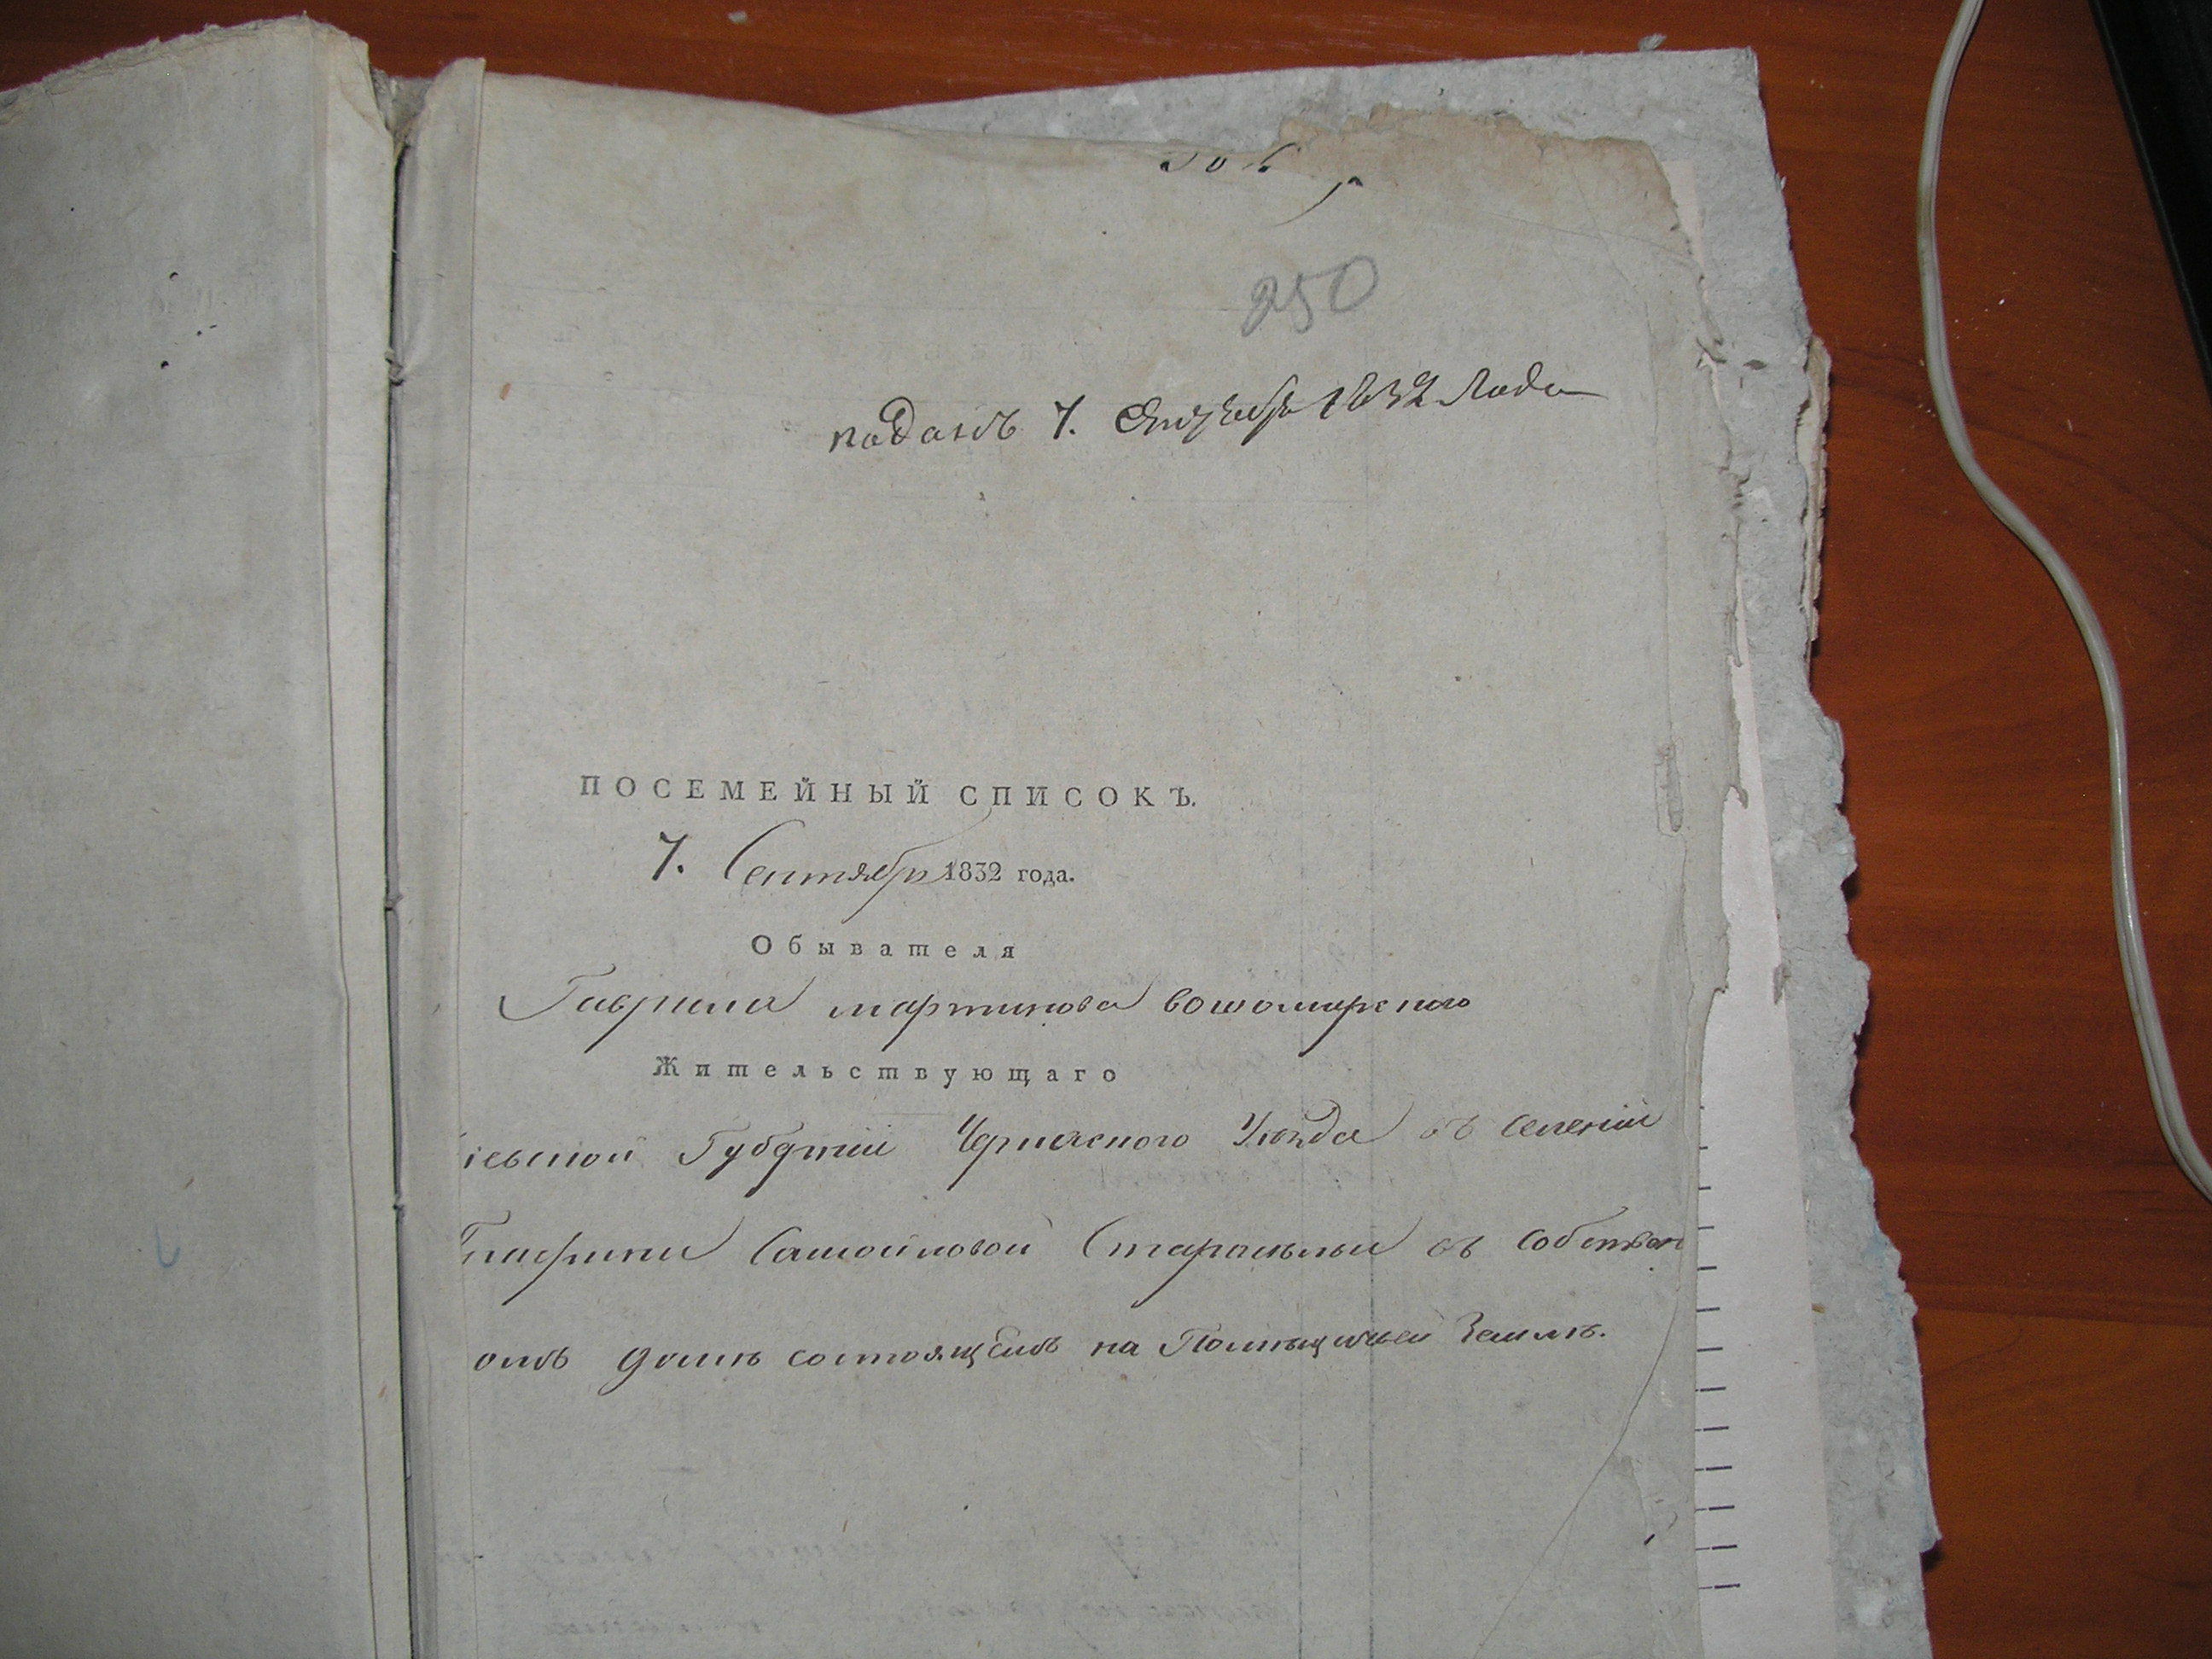 250
поданъ 7. Сентября 1832 Года
ПОСЕМЕЙНЫЙ СПИСОКЪ.
7. Сентября 1832 года.
Обывателя
Гаврила мартинова
Жительствующаго
іевской Губерніи Черкаского Уѣзда въ селеніи
Самойловой въ собствен
омъ домѣ состоящемъ на Помѣщичьей Землѣ.